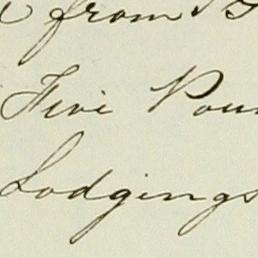 from
Five Pou
Lodgings